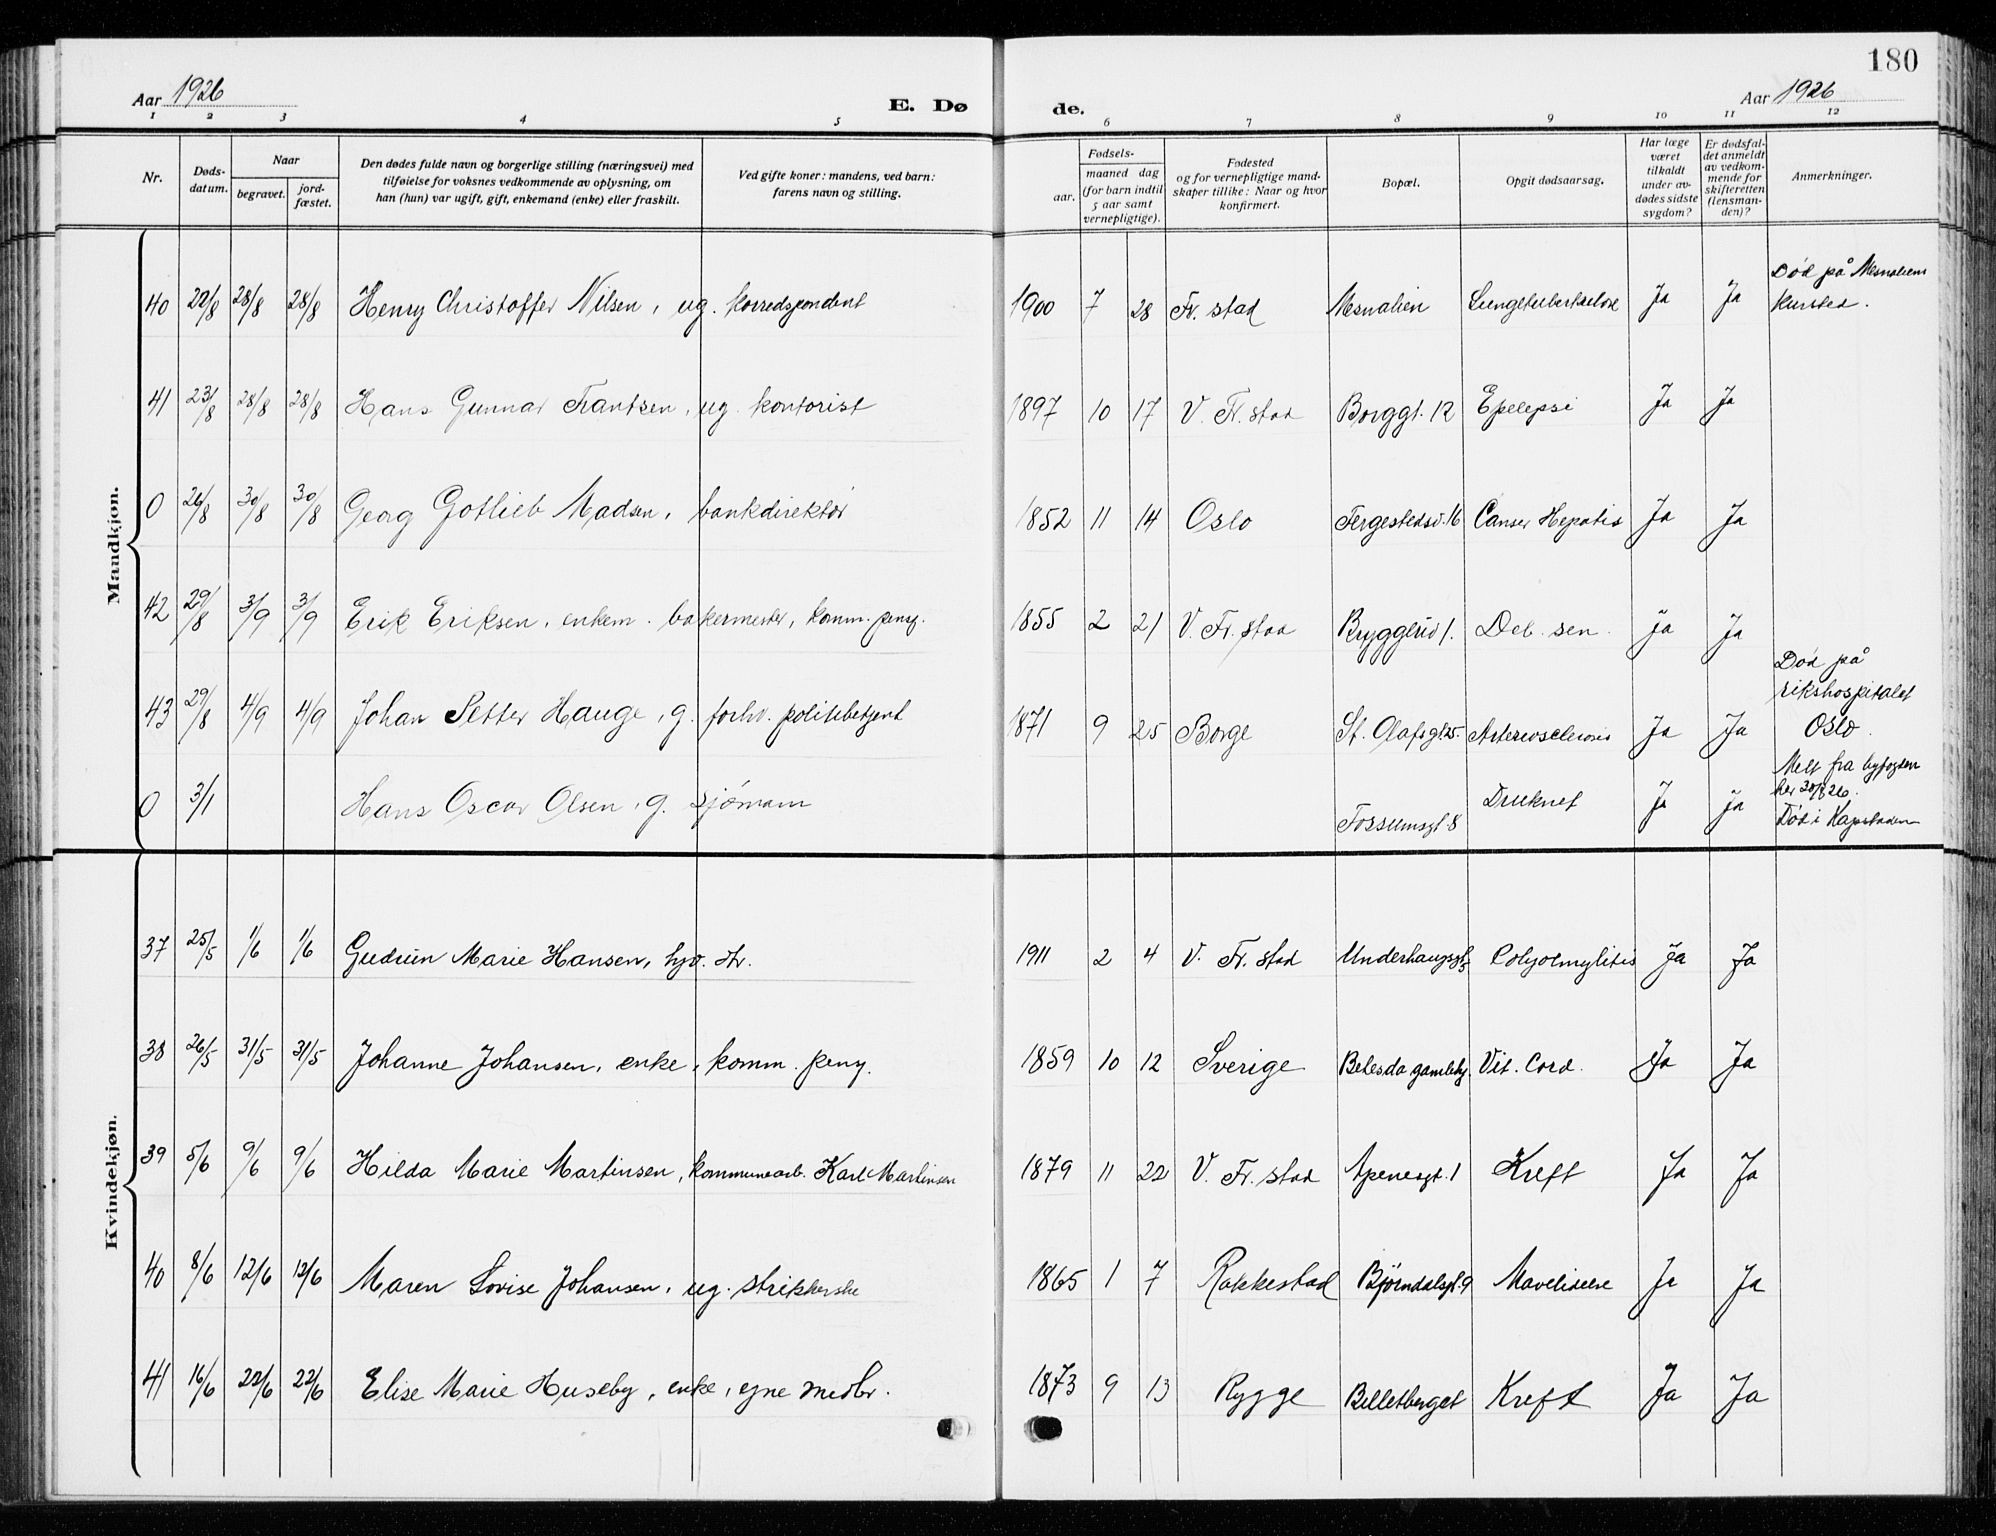 180
Aar 1926
E. Døde.
Aar 1926
1 2 3 4 5 6 7 8 9 10 11 12
Nr.
Døds-
datum.
Naar
begravet.
jord-
fæstet.
Den dødes fulde navn og borgerlige stilling (næringsvei) med
tilføielse for voksnes vedkommende av oplysning, om
han (hun) var ugift, gift, enkemand (enke) eller fraskilt.
Ved gifte koner: mandens, ved barn:
farens navn og stilling.
Fødsels-
aar.
maaned dag
(for barn indtil
5 aar samt
vernepligtige).
Fødested
og for vernepligtige mand-
skaper tillike: Naar og hvor
konfirmert.
Bopæl.
Opgit dødsaarsag.
Har læge
været
tilkaldt
under av-
dødes sidste
sygdom?
Er dødsfal-
det anmeldt
av vedkom-
mende for
skifteretten
(lensman-
den)?
Anmerkninger.
Mandkjøn.
40 22/8 28/8 28/8 Henry Christoffer Nilsen, ug. korredspondent 1900 7 28 Fr. stad Mesnalien Lungetuberkulose Ja Ja Død på Mesnaliens
Kursted.
41 23/8 28/8 28/8 Hans Gunnar Frantsen, ug. kontorist 1897 10 17 V. Fr. stad Borggt. 12 Epelepsi Ja Ja
0 26/8 30/8 30/8 Georg Gotlieb Madsen, bankdirektør 1852 11 14 Oslo Fergestedsv. 16 Canser Hepatis Ja Ja
42 29/8 3/9 3/9 Erik Eriksen, enkem. bakermester, komm. pensj. 1855 2 21 V. Fr. stad Bryggerid 1. Deb. sen. Ja Ja
43 29/8 4/9 4/9 Johan Petter Hauge, g. forhv. politibetjent 1871 9 25 Borge St. Olafsgt. 25. Arteriosclerosis Ja Ja Død på
rikshospitalet
Oslo.
0 3/1 Hans Oscar Olsen, g. sjømann Fossumsgt 8 Druknet Ja Ja Melt fra byfogden
her 30/8 26.
Død i Kapstaden
Kvindekjøn.
37 25/5 1/6 1/6 Gudrun Marie Hansen, hjv. dtr. 1911 2 4 V. Fr. stad Underhaugsgt. 5 Polyolmylitis Ja Ja
38 26/5 31/5 31/5 Johanne Johansen, enke, komm. penj. 1859 10 12 Sverige Betesda gamlehj. Vit. Cord. Ja Ja
39 5/6 9/6 9/6 Hilda Marie Martinsen, kommunearb. Karl Martinsen 1879 11 22 V. Fr. stad Apenesgt. 1 Kreft Ja Ja
40 8/6 12/6 12/6 Maren Lovise Johansen, ug. strikkerske 1865 1 7 Rakkestad Bjørndalsgt. 9 Mavelidelse Ja Ja
41 16/6 22/6 22/6 Elise Marie Huseby, enke, egne midler. 1873 9 13 Rygge Billetberget Kreft Ja Ja